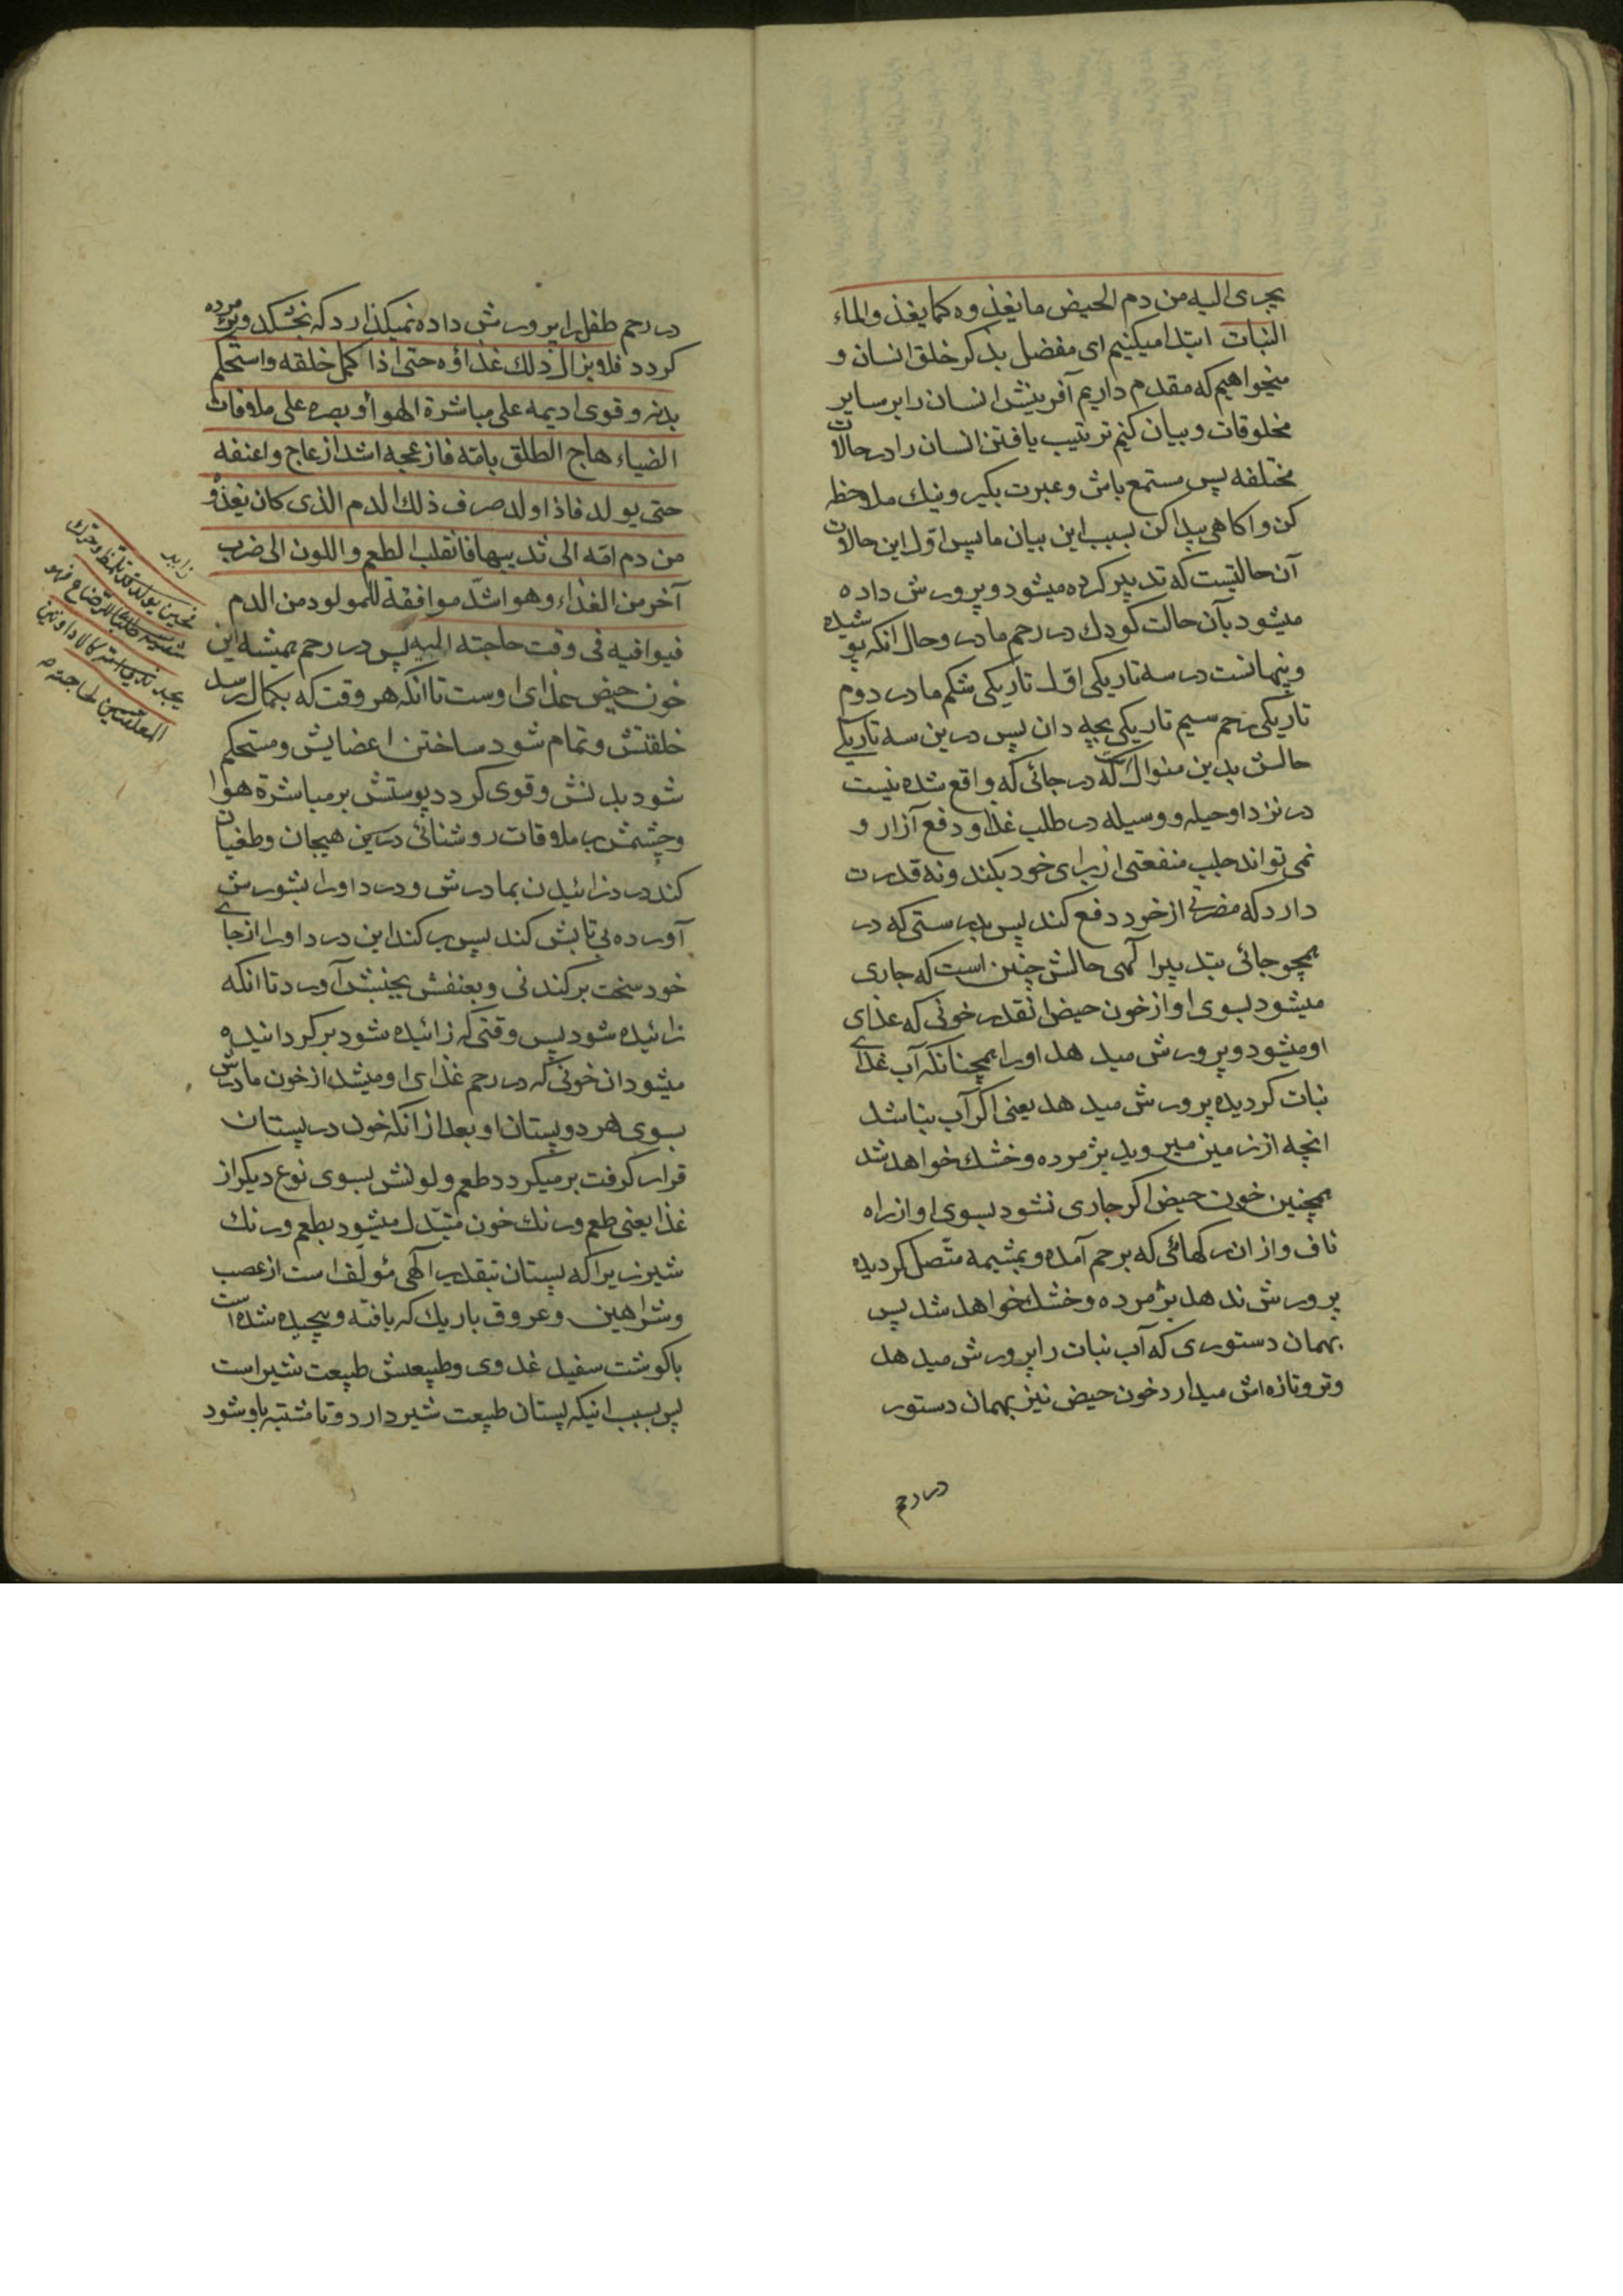 یجری الیه من دم الحیض ما یغذوه کما یغذو الماء
النبات ابتدا میکنیم ای مفضل بذکر خلق انسان و
میخواهیم که مقدم داریم آفرینش انسان را بر سایر
مخلوقات و بیان کنیم ترتیب یافتن انسان را در حالات
مختلفه پس مستمع باش و عبرت بکیر و نیک ملاحظه
کن و اکاهی پیدا کن بسبب این بیان ما پس اوّل این حالات
آن حالتیست که تدبیر کرده میشود و پرورش داده
میشود بآن حالت کودک در رحم مادر و حال انکه پوشیده
و پنهانست در سه تاریکی اوّل تاریکی شکم مادر دوم
تاریکی رحم سیم تاریکی بچه دان پس درین سه تاریکی
حالش بدین منوال است که در جائی که واقع شده نیست
در نزد او حیله و وسیله در طلب غذا و دفع آزار و
نمی تواند جلب منفعتی از برای خود بکند و نه قدرت
دارد که مضرتی از خود دفع کند پس بدرستی که در
همچو جائی بتدبیر الهی حالش چنین است که جاری
میشود بسوی او از خون حیض انقدر خونی که غذای
او میشود و پرورش میدهد او را همچنانکه آب غذای
نبات کردیده پرورش میدهد یعنی اکر آب نباشد
انچه از زمین میروید پژمرده و خشک خواهد شد
همچنین خون حیض اکر جاری نشود بسوی او از راه
ناف و از ان رکهائی که برحم آمده و بمشیمه متّصل کردیده
پرورش ندهد پژمرده و خشک خواهد شد پس
بهمان دستوری که آب نبات را پرورش میدهد
و تر و تازه اش میدارد خون حیض نیز بهمان دستور
در رحم
در رحم طفل را پرورش داده نمیکذارد که بخشکد و پژمرده
کردد فلا یزال ذلك غذاؤه حتی اذا کمل خلقه و استحکم
بدنه و قوی ادیمه علی مباشرة الهواء و بصره علی ملاقات
الضیاء هاج الطلق بامّه فازعجه اشد ازعاج و اعنفه
حتی یولد فاذا ولد صرف ذلك الدم الذی کان یغذوه
من دم امّه الی ثدییها فانقلب الطعم و اللون الی ضرب
آخر من الغذاء و هو اشدّ موافقة للمولود من الدم
فیوافیه فی وقت حاجته الیه پس در رحم همیشه این
خون حیض غذای اوست تا انکه هر وقت که بکمال رسد
خلقتش و تمام شود ساختن اعضایش و مستحکم
شود بدنش و قوی کردد پوستش بر مباشرة هوا
و چشمش بر ملاقات روشنائی درین هیجان و طغیان
کند درد زائیدن بمادرش و درد او را بشورش
آورده بی تابش کند پس بر کند این درد او را از جای
خود سخت بر کندنی و بعنفش بجنبش آورد تا انکه
زائیده شود پس وقتی که زائیده شود بر کردانیده
میشود ان خونی که در رحم غذای او میشد از خون مادرش
بسوی هر دو پستان او بعد از انکه خون در پستان
قرار کرفت بر میکردد طعم و لونش بسوی نوع دیکر از
غذا یعنی طعم و رنك خون متبدّل میشود بطعم و رنك
شیر زیرا که پستان بتقدیر الهی مؤلّف است از عصب
و شراهین و عروق باریك که بافته و پیچیده شده است
با کوشت سفید غددی و طبیعتش طبیعت شیر است
پس بسبب انیکه پستان طبیعت شیر دارد و تا مشتبه باو شود
زاید
فحین یولد قد تلمّظ و حرّك
شفتیه طلبا للرضاع فهو
یجد ثدیی امّه کالاداوتین
المعلقتین لحاجته